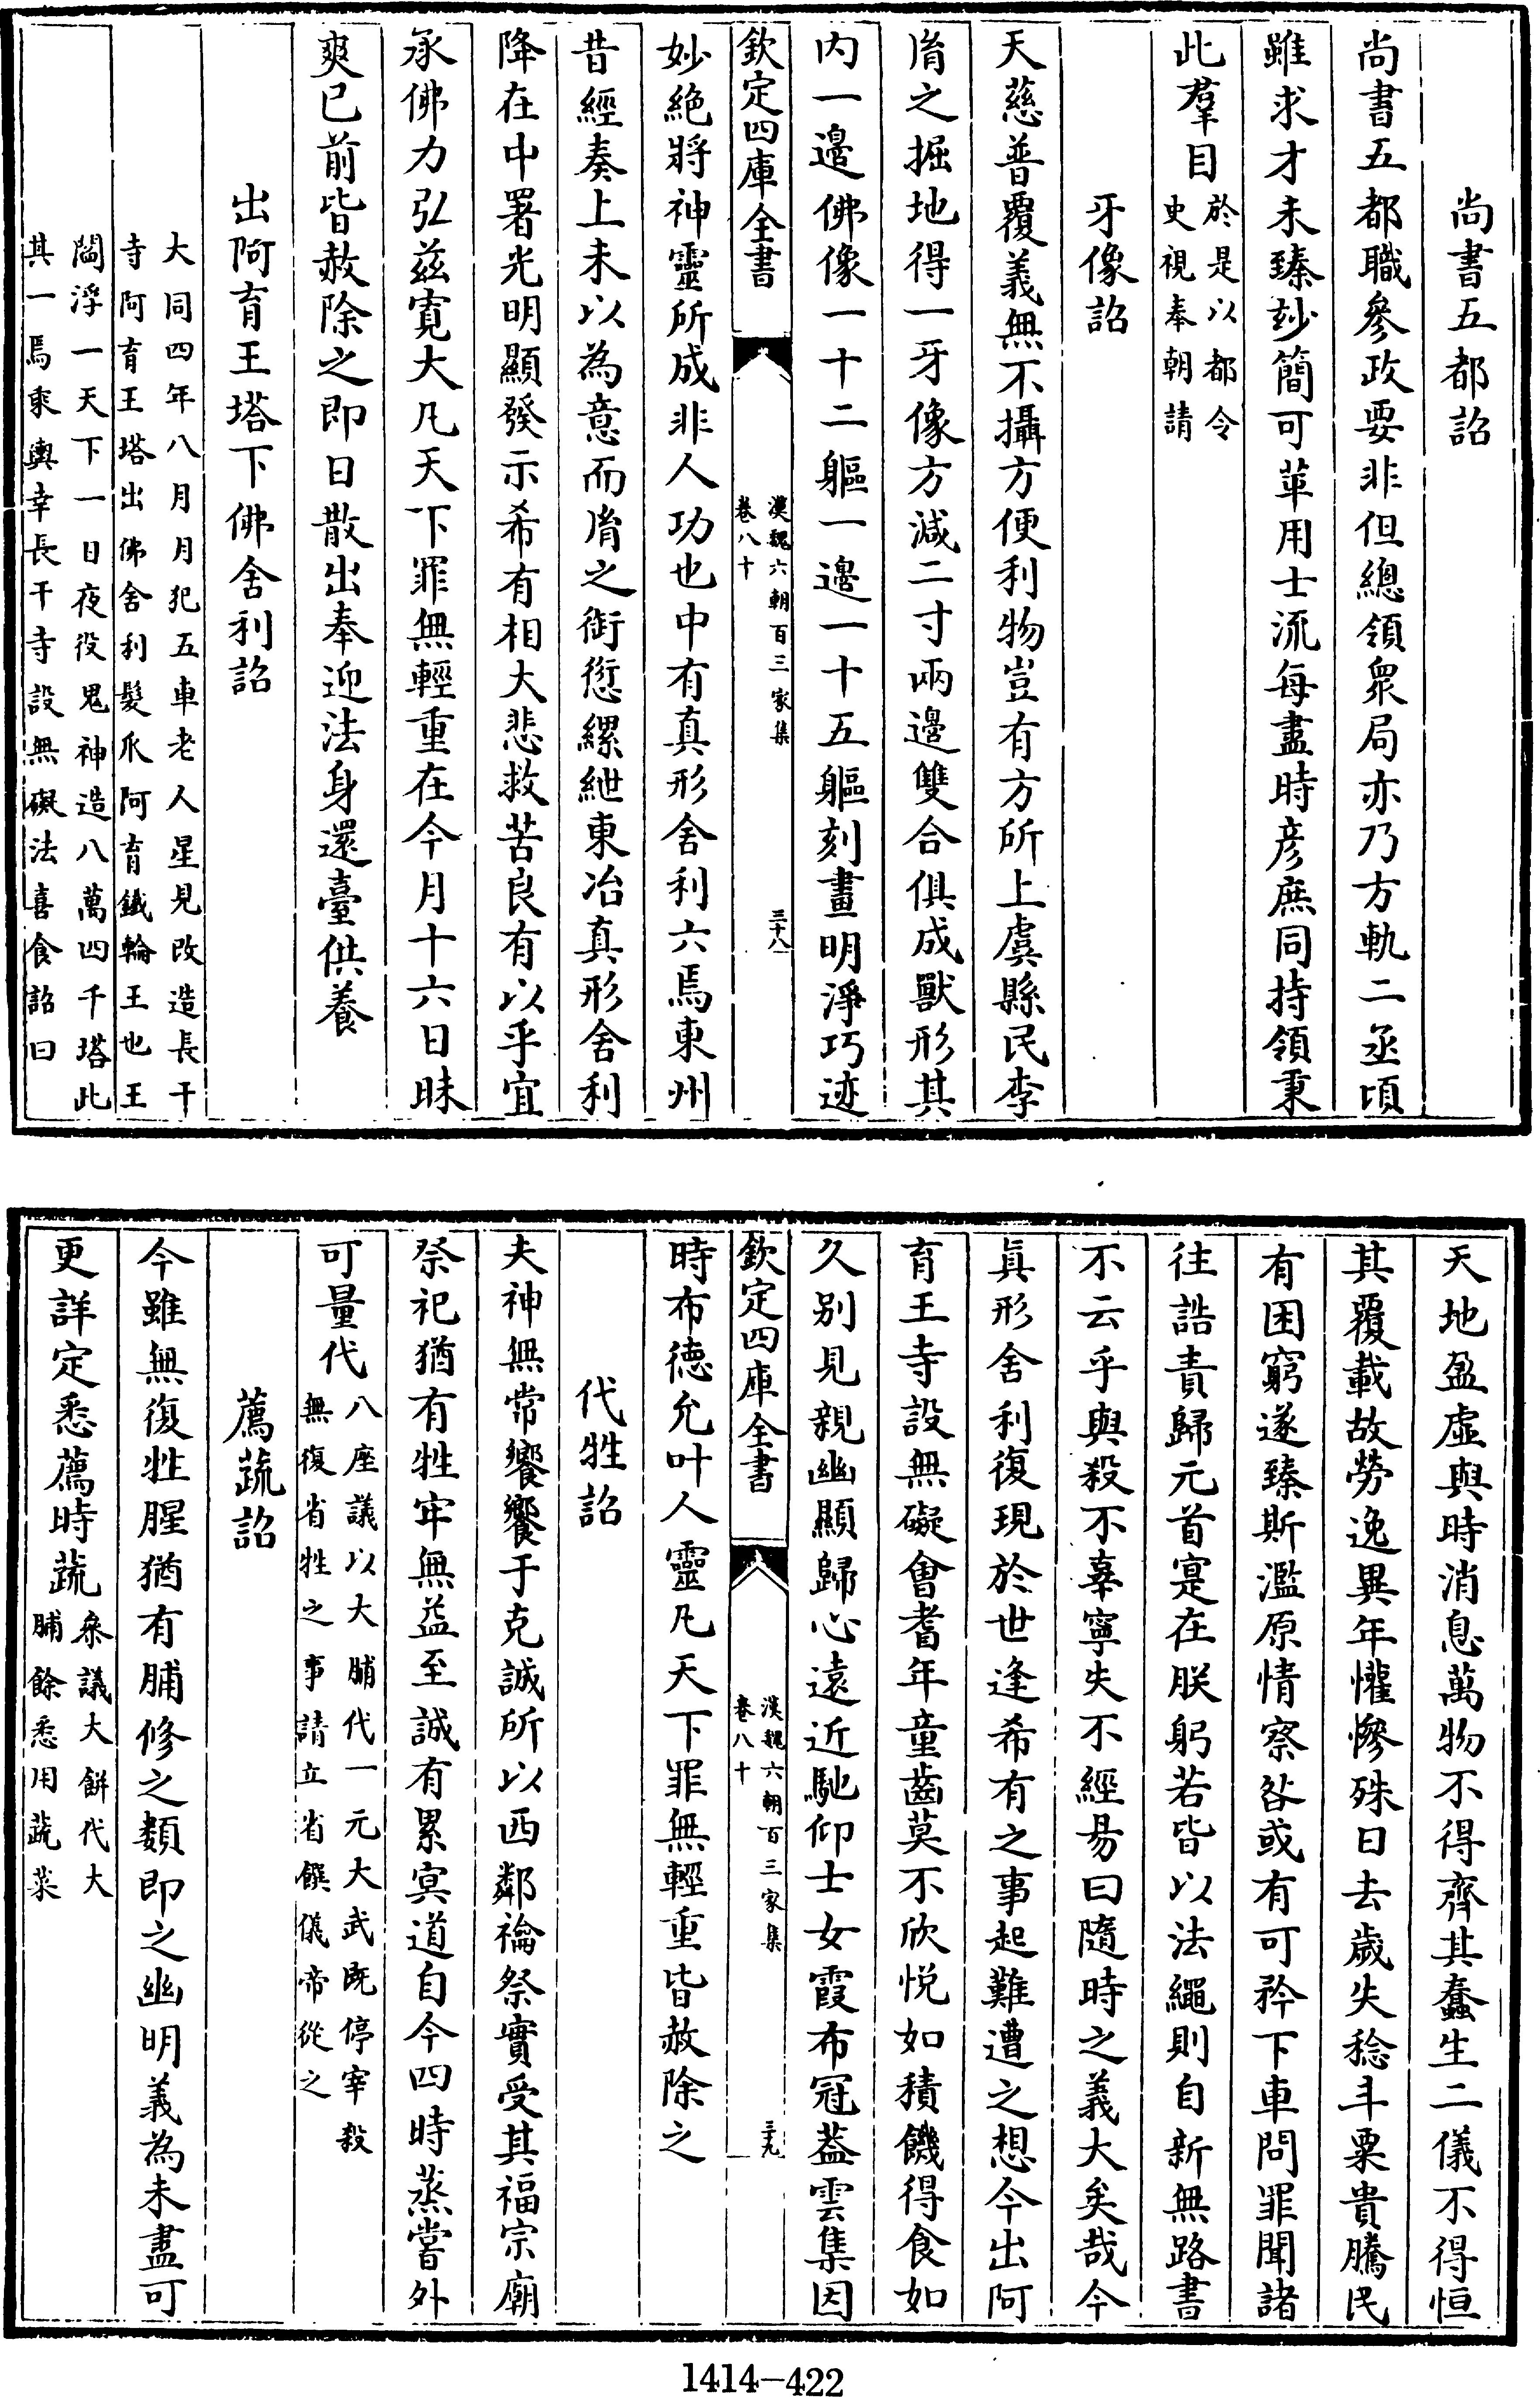 尚書五都詔
尚書五都職參政要非但總領衆局亦乃方軌二丞頃
雖求才未臻玅簡可革用士流每盡時彦庶同持領秉
此羣目於是以都令
史視奉朝請
牙像詔
天慈普覆義無不攝方便利物豈有方所上虞縣民李
胤之掘地得一牙像方減二寸兩邉雙合俱成獸形其
内一邉佛像一十二軀一邉一十五軀刻畫明淨巧迹
欽定四庫全書
漢魏六朝百三家集
卷八十
三十八
妙絶將神靈所成非人功也中有真形舍利六焉東州
昔經奏上未以為意而胤之銜愆縲紲東冶真形舍利
降在中署光明顯發示希有相大悲救苦良有以乎宜
承佛力弘兹寛大凡天下罪無輕重在今月十六日昧
爽已前皆赦除之即日散出奉迎法身還臺供養
出阿育王塔下佛舍利詔
大同四年八月月犯五車老人星見改造長干
寺阿育王塔出佛舍利髮爪阿育鐵輪王也王
閻浮一天下一日夜役鬼神造八萬四千塔此
其一焉乘輿幸長干寺設無礙法喜食詔曰
天地盈虛與時消息萬物不得齊其蠢生二儀不得恒
其覆載故勞逸異年懽慘殊日去歲失稔斗粟貴騰民
有困窮遂臻斯濫原情察咎或有可矜下車問罪聞諸
往誥責歸元首寔在朕躬若皆以法繩則自新無路書
不云乎與殺不辜寧失不經易曰隨時之義大矣哉今
眞形舍利復現於世逢希有之事起難遭之想今出阿
育王寺設無礙會耆年童齒莫不欣悦如積饑得食如
久别見親幽顯歸心遠近馳仰士女霞布冠葢雲集因
欽定四庫全書
漢魏六朝百三家集
卷八十
三十九
時布徳允叶人靈凡天下罪無輕重皆赦除之
代牲詔
夫神無常饗饗于克誠所以西鄰禴祭實受其福宗廟
祭祀猶有牲牢無益至誠有累冥道自今四時蒸嘗外
可量代八座議以大脯代一元大武既停宰殺
無復省牲之事請立省饌儀帝從之
薦蔬詔
今雖無復牲腥猶有脯修之類即之幽明義為未盡可
更詳定悉薦時蔬叅議大餅代大
脯餘悉用蔬菜
1414-422